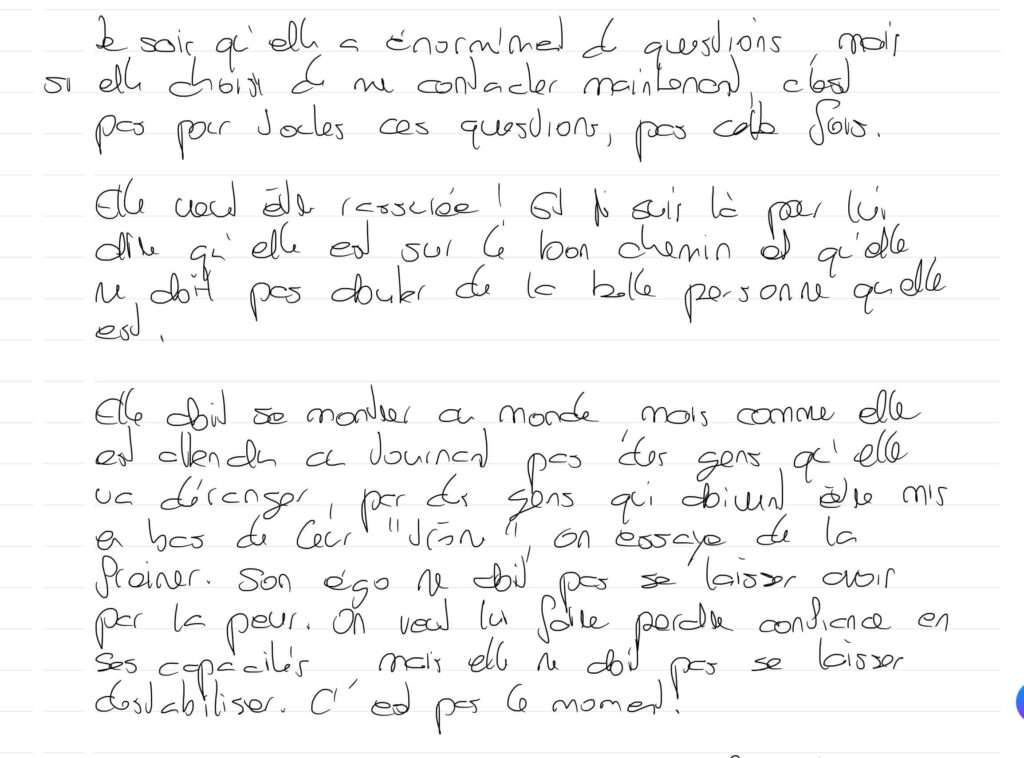 Je sais qu'elle a énormément de questions, mais
si elle choisit de me contacter maintenant, c'est
pas pour toutes ces questions, pas cette fois.
Elle veut être rassurée ! Et je suis là pour lui
dire qu'elle est sur le bon chemin et qu'elle
ne doit pas douter de la belle personne qu'elle
est.
Elle doit se montrer au monde mais comme elle
est attendu au tournant pas des gens qu'elle
va déranger, par des gens qui doivent être mis
en bas de leur "trône", on essaye de la
freiner. Son égo ne doit pas se laisser avoir
par la peur. On veut lui faire perdre confiance en
ses capacités mais elle ne doit pas se laisser
destabiliser. C'est pas le moment !